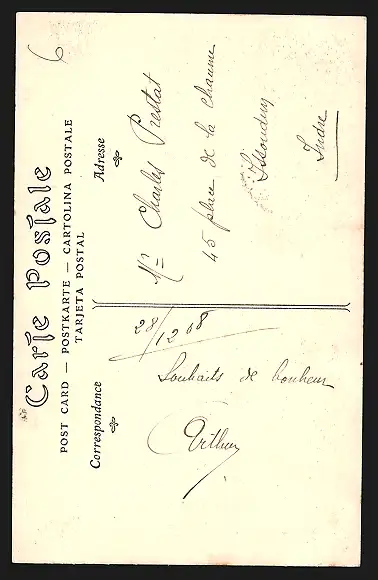 6
Carte Postale
POST CARD — POSTKARTE — CARTOLINA POSTALE
TARJETA POSTAL
Correspondance
28/12 08
Souhaits de bonheur
Arthur
Adresse
Mr Charles Prestat
45 place de la Chaume
Issoudun
Indre